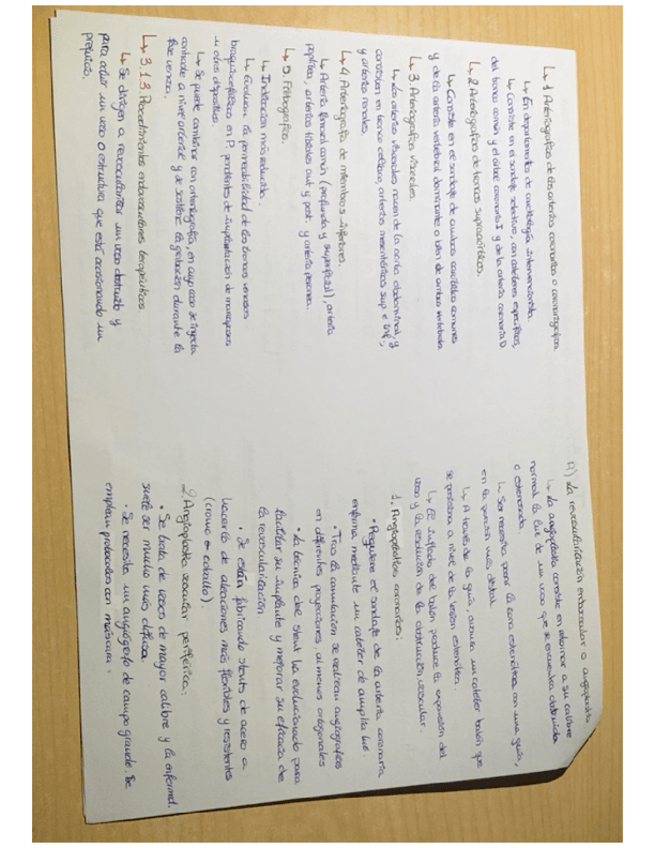 ↳ 1 Arteriografías de las arterias coronarias o coronariografías
↳ En departamentos de cardiología intervencionista.
↳ Consiste en el sondaje selectivo, con catéteres específicos,
del tronco común y el árbol coronario I y de la arteria coronaria D.
↳ 2 Arteriografías de troncos supraaórticos.
↳ Consiste en el sondaje de ambas carótidas comunes
y de la arteria vertebral dominante o bien de ambas vertebrales
↳ 3 Arteriografías viscerales.
↳ Las arterias viscerales nacen de la aorta abdominal, y
consisten en tronco celíaco, arterias mesentéricas sup e inf,
y arterias renales.
↳ 4. Arteriografía de miembros inferiores.
↳ Arteria femoral común (profunda y superficial), arteria
poplítea, arterias tibiales ant y post. y arteria peronea.
↳ 5. Flebografías.
↳ Indicación más reducida.
↳ Evalúan la permeabilidad de los troncos venosos
braquiocefálicos en P. pendientes de implantación de marcapasos
u otros dispositivos.
↳ Se puede combinar con arteriografía, en cuyo caso se inyecta
contraste a nivel arterial y se sostiene la grabación durante la
fase venosa.
↳ 3.1.3. Procedimientos endovasculares terapéuticos
↳ Se dirigen a revascularizar un vaso obstruido y
para ocluir un vaso o estructura que está ocasionando un
prejuicio.
A) La revascularización endovascular o angioplastia
↳ La angioplastia consiste en retornar a su calibre
normal la luz de un vaso que se encuentra obstruido
o estenosado.
↳ Ser necesita pasar la zona estenótica con una guía,
en la porción más distal
↳ A través de la guía, avanza un catéter balón que
se posiciona a nivel de la lesión estenótica.
↳ El inflado del balón produce la expansión del
vaso y la resolución de la obstrucción vascular.
1. Angioplastias coronarias:
• Requiere el sondaje de la arteria coronaria
enferma mediante un catéter de amplia luz.
• Tras la canulación se realizan angiografías
en diferentes proyecciones, al menos ortogonales
• La técnica del stent ha evolucionado para
facilitar su implante y mejorar su eficacia de
la revascularización
• Se están fabricando stents de acero a
hacerlo de aleaciones más flexibles y resistentes
(cromo - cobalto).
2. Angioplastia vascular periférica:
• Se trata de vasos de mayor calibre y la enfermd.
suele ser mucho más difusa
• Se necesita un angiógrafo de campo grande. Se
emplean protocolos con máscara.